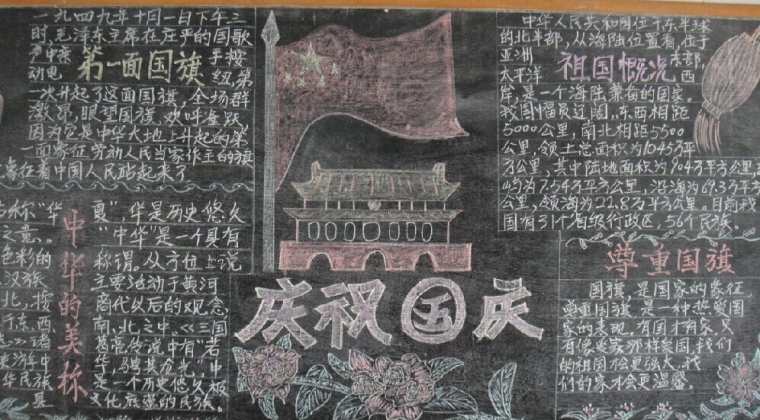 第一面国旗
一九四九年十月一日下午三
时,毛泽东主席在庄严的国歌
声中亲手按
动电钮,第
一次升起了这面国旗,全场群
激昂,眼望国旗,欢呼雀跃
因为它是中华大地上升起的第
一面象征劳动人民当家作主的旗
象征着中国人民站起来了
中华的美称
称"华夏",华是历史悠久
之意。"中华"是一个具有
色彩的称谓。从方位上说
汉族主要活动于黄河
商代以后的观念
南、北之中。《三国
是一个历史悠久
文化 的民族。
庆祝国庆
祖国概况
中华人民共和国位于东半球
的北半部,从海陆位置看,位于
亚洲东部,
太平洋西
岸,是一个海陆兼备的国家。
我国幅员辽阔,东西相距
5000公里,南北相距5500
公里,领土总面积为1045万平
方公里,其中陆地面积为904万平方公里,
屿为7.54万平方公里,沿海为69.3万平方
公里,领海为22.8万平方公里。目前我
国有31个省级行政区,56个民族。
尊重国旗
国旗,是国家的象征
尊重国旗,是一种热爱国
家的表现,有国才有家,只
有像爱家那样爱国,我们
的祖国才会更强大,我
们的家才会更温馨。